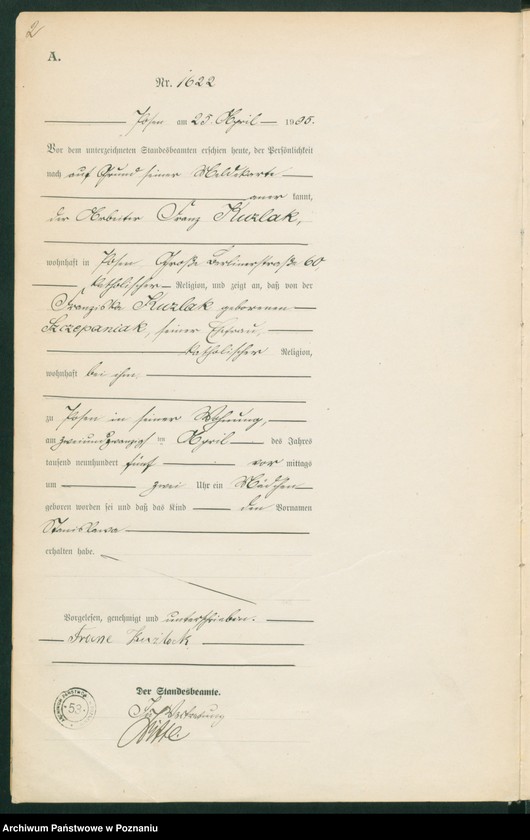 2
A.
Nr. 1622
Posen am 25. April 1905.
Vor dem unterzeichneten Standesbeamten erschien heute, der Persönlichkeit
nach auf Grund seiner Meldekarte
aner kannt,
der Arbeiter Franz Kuzlak,
wohnhaft in Posen Große Berlinerstraße 60,
katholischer Religion, und zeigt an, daß von der
Franziska Kuzlak geborenen
Szczepaniak, seiner Ehefrau,
katholischer Religion,
wohnhaft bei ihm,
zu Posen in seiner Wohnung,
am zweiundzwanzigsten April des Jahres
tausend neunhundert fünf vor mittags
um zwei Uhr ein Mädchen
geboren worden sei und daß das Kind den Vornamen
Stanislawa
erhalten habe.
Vorgelesen, genehmigt und unterschrieben.
Der Standesbeamte.
In Vertretung
53
Archiwum Państwowe w Poznaniu